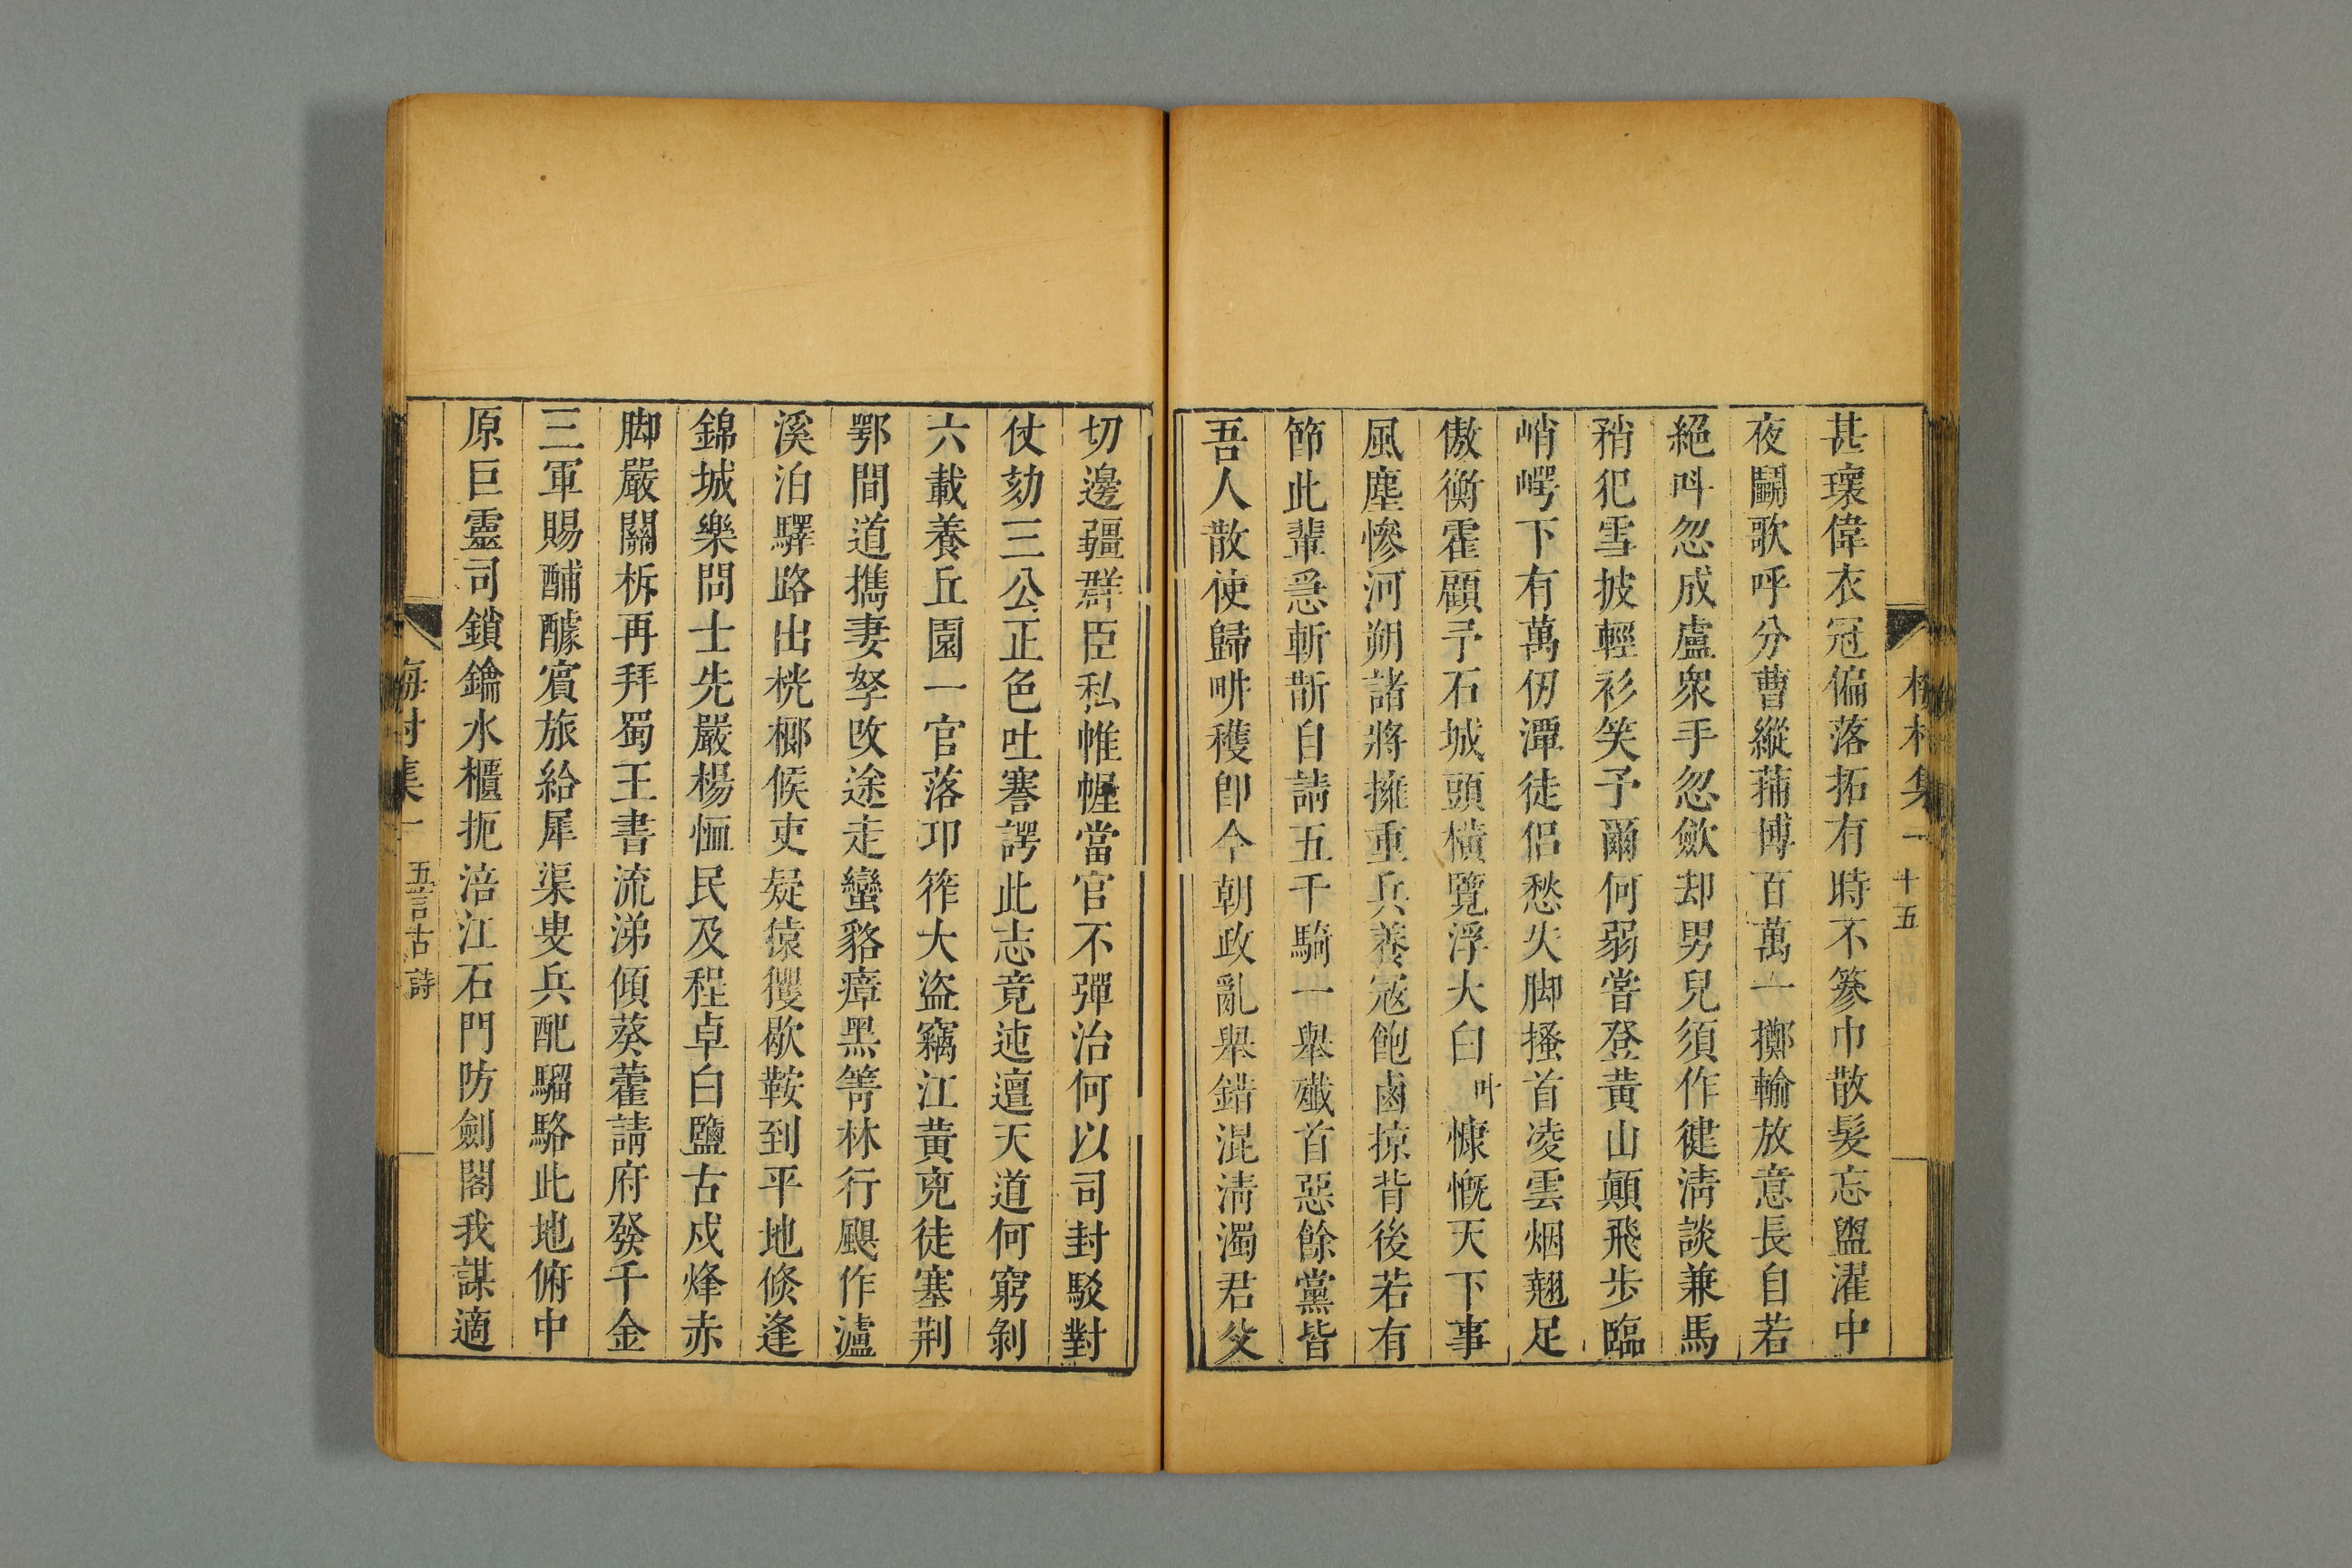 甚瓌偉衣冠偏落拓有時不篸巾散髮忘盥濯中
夜鬭歌呼分曹縱蒱博百萬一擲輸放意長自若
絕呌忽成盧衆手忽歛却男兒須作健淸談兼馬
矟犯雪披輕衫笑予爾何弱嘗登黃山顚飛步臨
峭崿下有萬仞潭徒侶愁失脚搔首凌雲烟翹足
傲衡霍顧予石城頭橫覽浮大白叶慷慨天下事
風塵慘河朔諸將擁重兵養寇飽鹵掠背後若有
節此輩急斬斮自請五千騎一舉殲首惡餘黨皆
吾人散使歸畊穫卽今朝政亂舉錯混淸濁君父
切邊疆群臣私帷幄當官不彈治何以司封駁對
仗劾三公正色吐謇諤此志竟迍邅天道何窮剝
六載養丘園一官落邛筰大盜竊江黃兇徒塞荆
鄂間道攜妻孥改途走蠻貉瘴黑箐林行颶作瀘
溪泊驛路出桄榔候吏疑猿玃歇鞍到平地倏逢
錦城樂問士先嚴楊恤民及程卓白鹽古戍烽赤
脚嚴關柝再拜蜀王書流涕傾葵藿請府發千金
三軍賜酺醵賓旅給犀渠叟兵配騮駱此地俯中
原巨靈司鎖鑰水櫃扼涪江石門防劍閣我謀適
集一 十五
集一 五言古詩